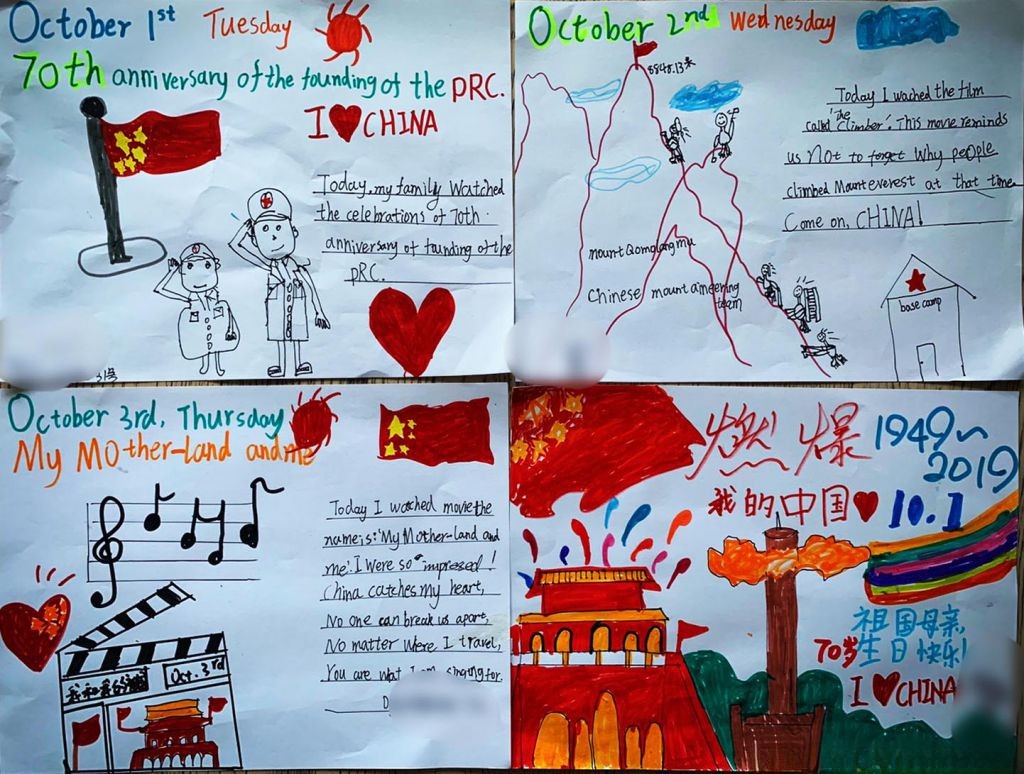 October 1st Tuesday
70th anniversary of the founding of the PRC.
I ❤ CHINA
Today, my family watched
the celebrations of 70th
anniversary of founding of the
PRC.
31号
October 2nd Wednesday
8848.13米
Today I wached the film
called 'the Climber'. This movie reminds
us Not to forget Why people
climbed Mount everest at that time
Come on, CHINA!
mount Qomolangmu
Chinese mountaineering
team
base camp
October 3rd, Thursday
My Mother-land and me
Today I watched movie the
name is: 'My Mother-land and
me'. I were so impressed!
China catches my heart,
No one can break us apart,
No matter where I travel,
You are what I am singing for.
我和我的祖国
Oct. 3rd
燃爆
1949~
2019
我的中国❤
10.1
祖国母亲,
70岁生日快乐!
I ❤ CHINA